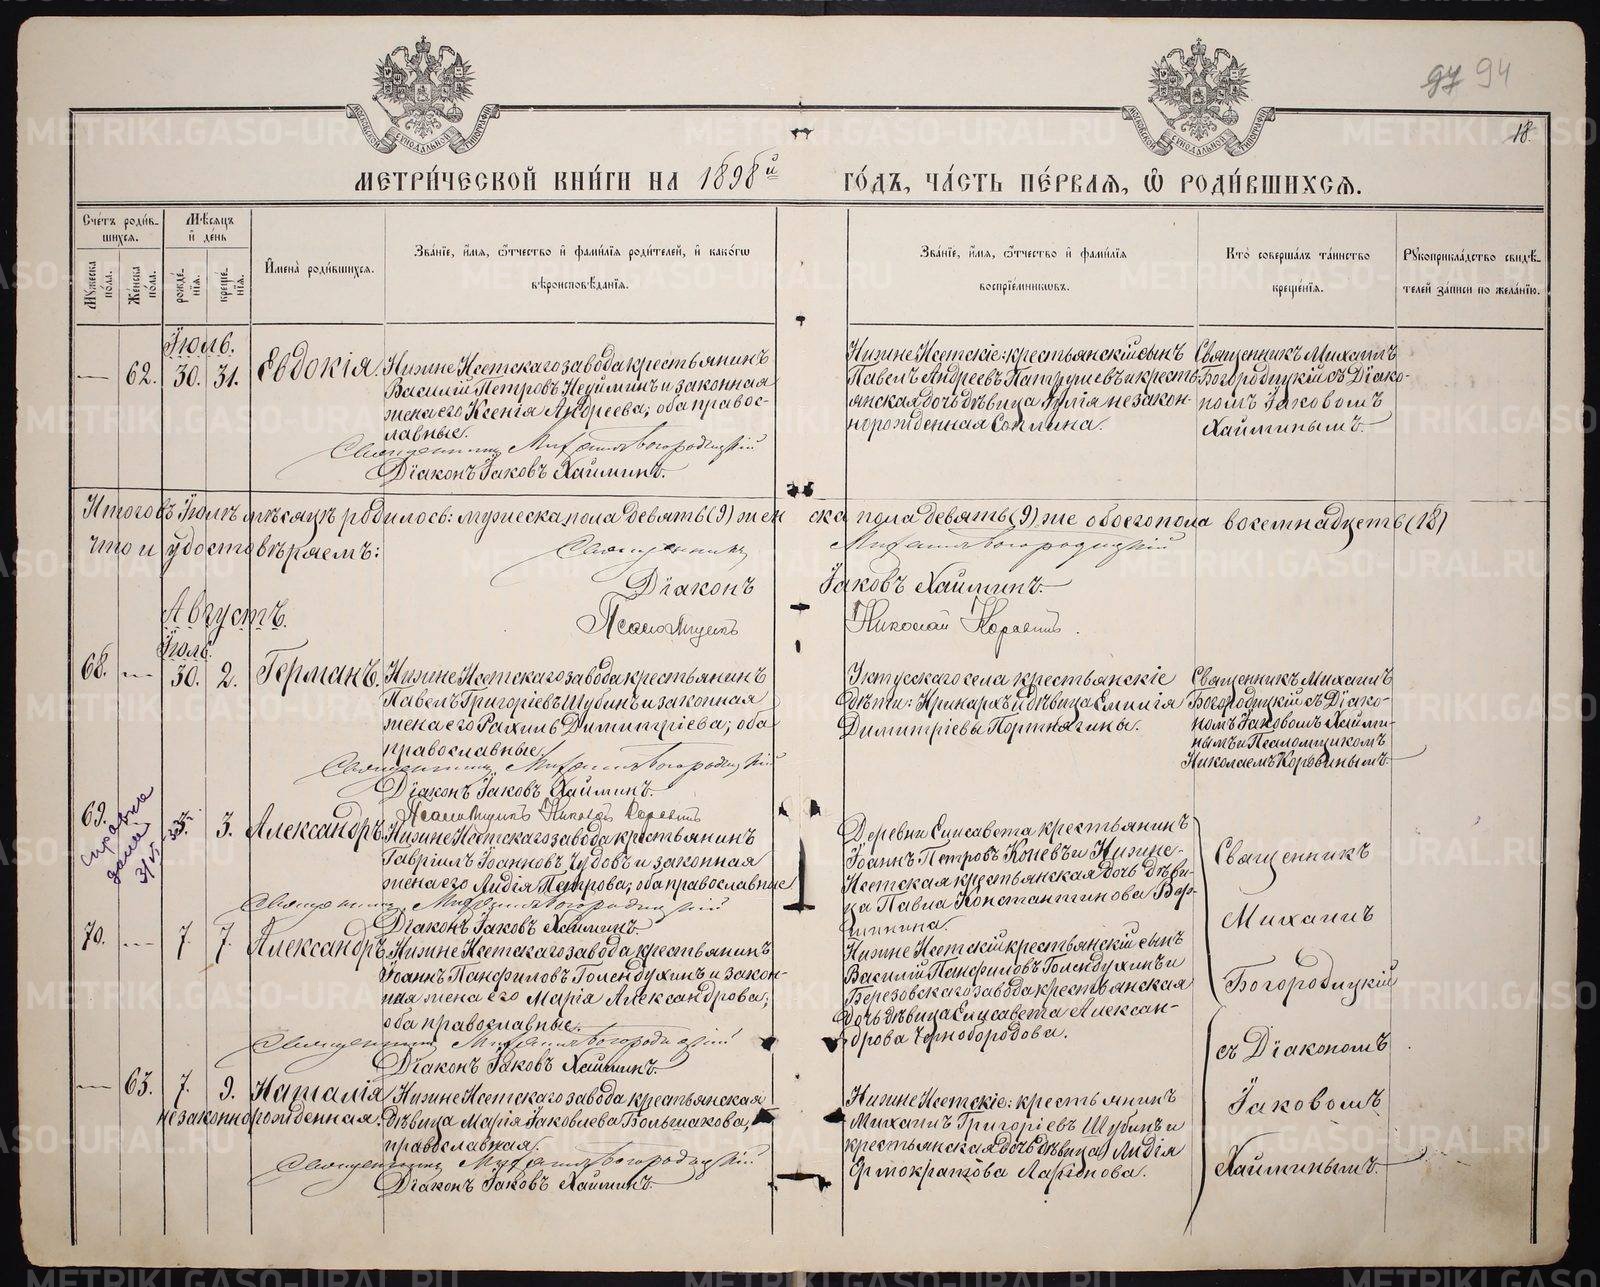 94
18.
МЕТРИ́ЧЕСКОЙ КНИ́ГИ НА 1898й ГО́ДЪ, ЧА́СТЬ ПЕ́РВАЯ, Ѽ РОДИ́ВШИХСЯ.
Сче́тъ роди́в-
шихся.
Мѣ́сяцъ
и҆ де́нь
Му́жеска по́ла.
Же́нска по́ла.
рожде́нїя.
креще́нїя.
И҆мена̀ роди́вшихся.
Зва́нїе, и҆́мя, ѻ҆́тчество и҆ фами́лїя роди́телей, и҆ како́гѡ
вѣроисповѣ́данїя.
Зва́нїе, и҆́мя, ѻ҆́тчество и҆ фами́лїя
воспрїе́мникѡвъ.
Кто̀ соверша́лъ та́инство
креще́нїя.
Рꙋкоприкла́дство свидѣ́-
телей за́писи по жела́нїю.
Іюль.
— 62. 30. 31. Евдокія.
Нижне Исетскаго завода крестьянинъ
Василій Петровъ Неуйминъ и законная
жена его Ксенія Андреева; оба правос-
лавные.
Священникъ Михаилъ Богородицкій
Діаконъ Іаковъ Хайминъ.
Нижне Исетскіе: крестьянскій сынъ
Павелъ Андреевъ Патрушевъ и кресть-
янская дочь дѣвица Юлія незакон-
норожденная Сомлина.
Священникъ Михаилъ
Богородицкій съ Діако-
номъ Іаковомъ
Хайминымъ.
Итого въ Іюлѣ мѣсяцѣ родилось: мужеска пола девять (9) женска пола девять (9) же обоего пола восемнадцеть (18)
что и удостовѣряемъ:
Священникъ Михаилъ Богородицкій
Діаконъ Іаковъ Хайминъ.
Псаломщикъ Николай Коровинъ.
Августъ.
Іюль.
68. — 30. 2. Германъ.
Нижне Исетскаго завода крестьянинъ
Павелъ Григоріевъ Шубинъ и законная
жена его Рахиль Димитріева; оба
православные.
Священникъ Михаилъ Богородицкій
Діаконъ Іаковъ Хайминъ.
Псаломщикъ Николай Коровинъ
Уктусскаго села крестьянскіе
дѣти: Прикархъ и дѣвица Емилія
Димитріевы Портнягины.
Священникъ Михаилъ
Богородицкій съ Діако-
номъ Іаковомъ Хайми-
нымъ и Псаломщикомъ
Николаемъ Коровинымъ.
69. 3. Александръ
Справка
дана
Нижне Исетскаго завода крестьянинъ
Гавріилъ Іоанновъ Чудовъ и законная
жена его Лидія Петрова; оба православные
Священникъ Михаилъ Богородицкій
Діаконъ Іаковъ Хайминъ.
Деревни Елисавета крестьянинъ
Іоаннъ Петровъ Коневъ и Нижне-
Исетская крестьянская дочь дѣви-
ца Павла Константинова Вер-
шинина.
70. — 7. 7. Александръ
Нижне Исетскаго завода крестьянинъ
Іоаннъ Панфиловъ Голендухинъ и закон-
ная жена его Марія Александрова;
оба православные.
Священникъ Михаилъ Богородицкій
Діаконъ Іаковъ Хайминъ.
Нижне Исетскій крестьянскій сынъ
Василій Панфиловъ Голендухинъ и
Березовскаго завода крестьянская
дочь дѣвица Елисавета Алексан-
дрова Чернобородова.
— 63. 7. 9. Наталія
незаконнорожденная.
Нижне Исетскаго завода крестьянская
дѣвица Марія Іаковлева Большакова,
православная.
Священникъ Михаилъ Богородицкій
Діаконъ Іаковъ Хайминъ.
Нижне Исетскіе: крестьянинъ
Михаилъ Григоріевъ Шубинъ и
крестьянская дочь дѣвица Лидія
Ермократова Ларіонова.
Священникъ
Михаилъ
Богородицкій
съ Діакономъ
Іаковомъ
Хайминымъ.
METRIKI.GASO-URAL.RU